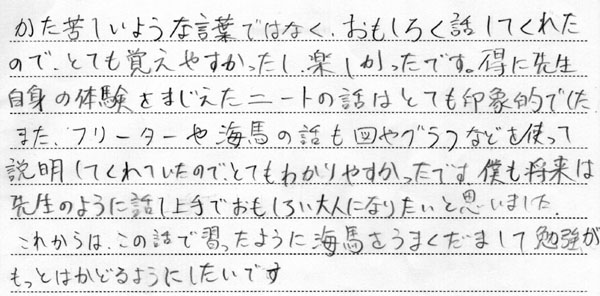 かた苦しいような言葉ではなく、おもしろく話してくれた
ので、とても覚えやすかったし、楽しかったです。得に先生
自身の体験をまじえたニートの話はとても印象的でした
また、フリーターや海馬の話も図やグラフなどを使って
説明してくれていたので、とてもわかりやすかったです。僕も将来は
先生のように話し上手でおもしろい大人になりたいと思いました。
これからは、この話で習ったように海馬をうまくだまして勉強が
もっとはかどるようにしたいです